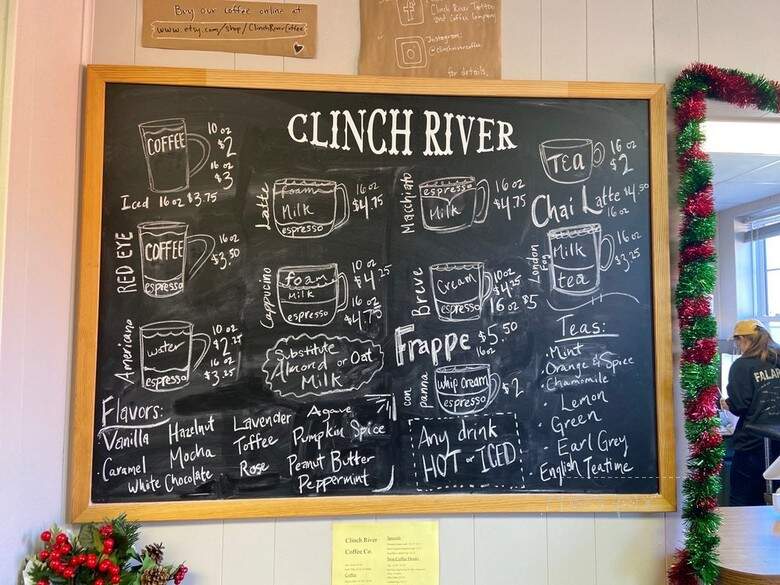 Buy our coffee online at
www.etsy.com/shop/ClinchRiverCoffee
Clinch River Tattoo
and Coffee Company
Instagram:
@clinchrivercoffee
for details.
CLINCH RIVER
COFFEE
10 oz
$2
16 oz
$3
Iced 16 oz $3.75
RED EYE
COFFEE
espresso
16 oz
$3.50
Americano
water
espresso
10 oz
16 oz
$3.25
Latte
foam
Milk
espresso
16 oz
$4.75
Cappucino
foam
Milk
espresso
10 oz
$4.25
16 oz
$4.75
Substitute
Almond or Oat
Milk
Macchiato
espresso
Milk
16 oz
$4.75
Breve
Cream
espresso
10 oz
$4.25
16 oz $5
Frappe $5.50
16oz
con panna
Whip Cream
espresso
$2
Any drink
HOT or ICED
Tea
16 oz
$2
Chai Latte $4.50
16 oz
London Fog
Milk
tea
16 oz
$3.25
Teas:
Mint
Orange & Spice
Chamomile
Lemon
Green
Earl Grey
English Teatime
Flavors:
Vanilla
Hazelnut
Lavender
Agave
Caramel
Mocha
Toffee
Pumpkin Spice
White Chocolate
Rose
Peanut Butter
Peppermint
Clinch River
Coffee Co.
Coffee